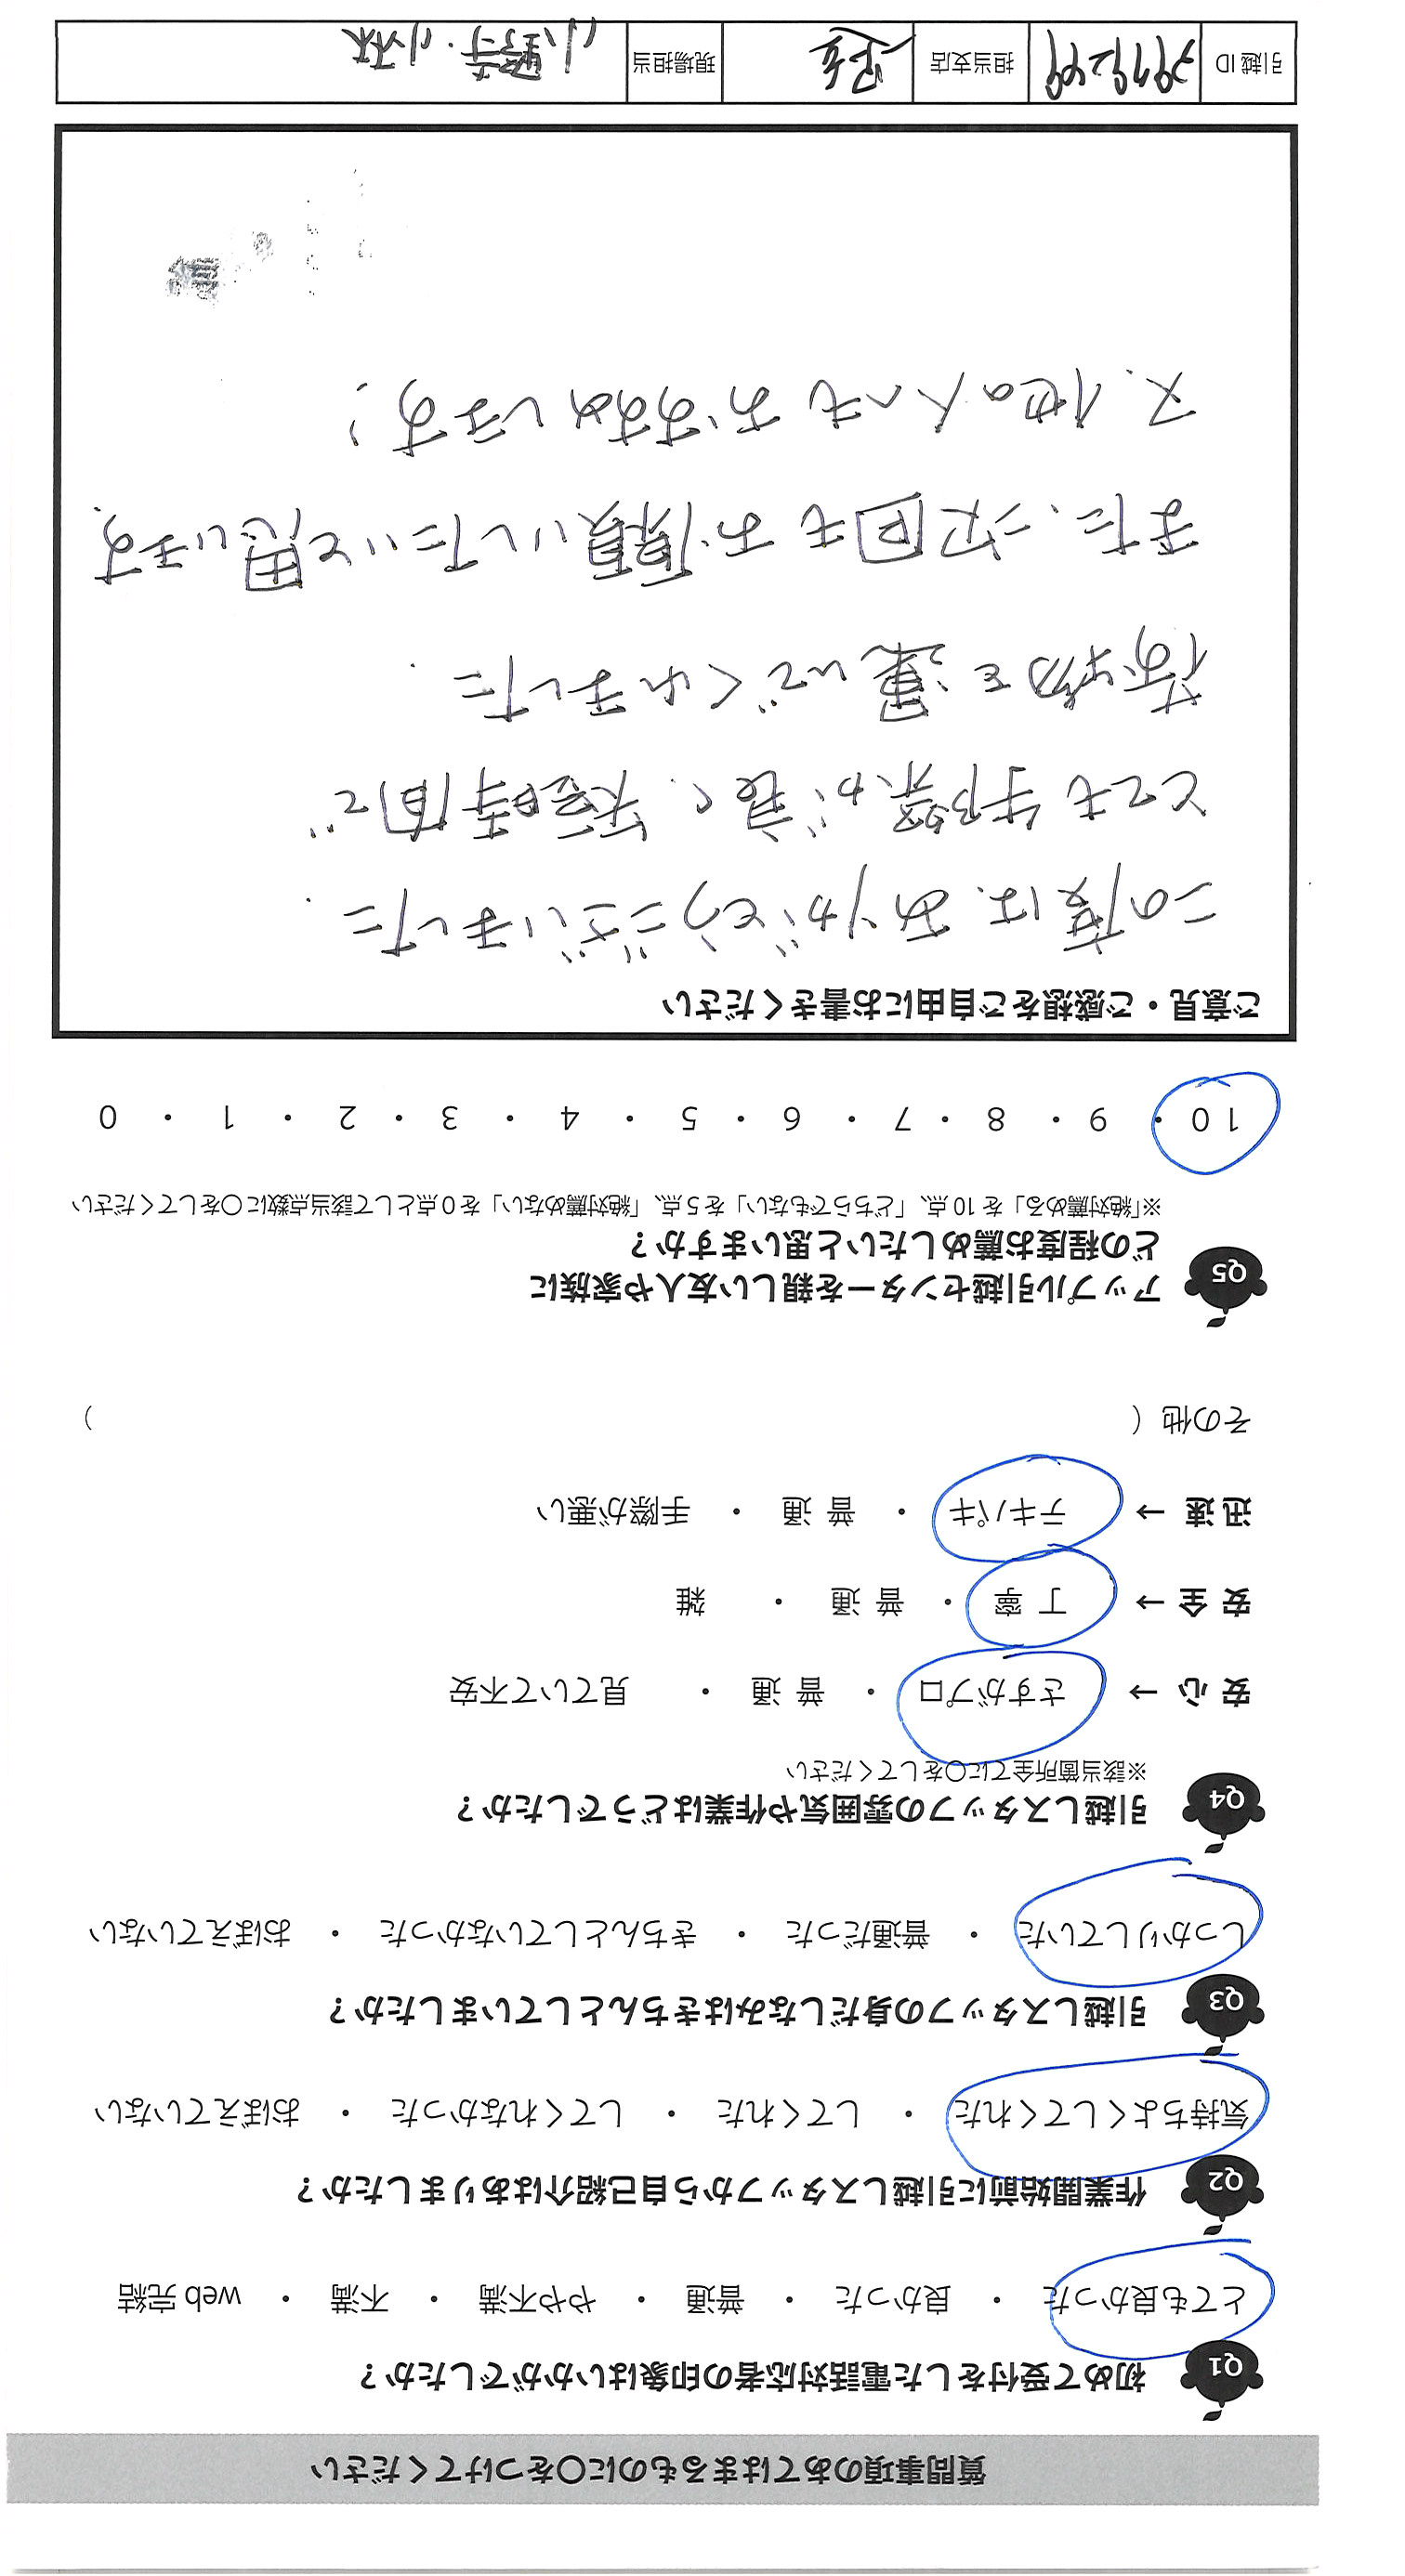 質問事項のあてはまるものに○をつけてください
Q1 初めて受付をした電話対応者の印象はいかがでしたか？
とても良かった ・ 良かった ・ 普通 ・ やや不満 ・ 不満 ・ web 完結
Q2 作業開始前に引越しスタッフから自己紹介はありましたか？
気持ちよくしてくれた ・ してくれた ・ してくれなかった ・ おぼえていない
Q3 引越しスタッフの身だしなみはきちんとしていましたか？
しっかりしていた ・ 普通だった ・ きちんとしていなかった ・ おぼえていない
Q4 引越しスタッフの雰囲気や作業はどうでしたか？
※該当箇所全てに○をしてください
安 心 → さすがプロ ・ 普 通 ・ 見ていて不安
安 全 → 丁 寧 ・ 普 通 ・ 雑
迅 速 → テキパキ ・ 普 通 ・ 手際が悪い
その他（ ）
Q5 アップル引越センターを親しい友人や家族に
どの程度お薦めしたいと思いますか？
※「絶対薦める」を 10 点、「どちらでもない」を 5 点、「絶対薦めない」を 0 点として該当点数に○をしてください
10 ・ 9 ・ 8 ・ 7 ・ 6 ・ 5 ・ 4 ・ 3 ・ 2 ・ 1 ・ 0
ご意見・ご感想をご自由にお書きください
この度は、ありがとうございました.
とても手際が良く、短時間で
荷物を運んでくれました.
また、次回もお願いしたいと思います.
又、他の人へもおすすめします！
引越 ID 担当支店 現場担当 小野寺・小林